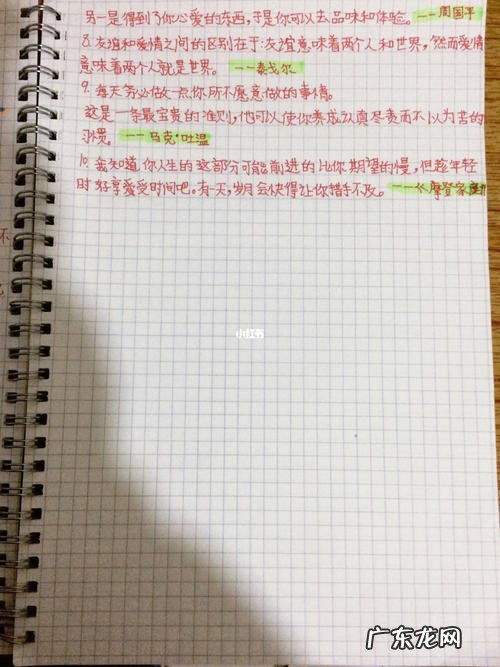 另一是得到了你心爱的东西,于是你可以去品味和体验。——周国平
8. 友谊和爱情之间的区别在于:友谊意味着两个人和世界,然而爱情
意味着两个人就是世界。——泰戈尔
9. 每天务必做一点你所不愿意做的事情。
这是一条最宝贵的准则,他可以使你养成认真尽责而不以为苦的
习惯。——马克·吐温
10. 我知道你人生的这部分可能前进的比你期望的慢,但趁年轻
时好享爱受时间吧。有一天,岁月会快得让你措手不及。——《摩登家庭
小红书
广东龙网